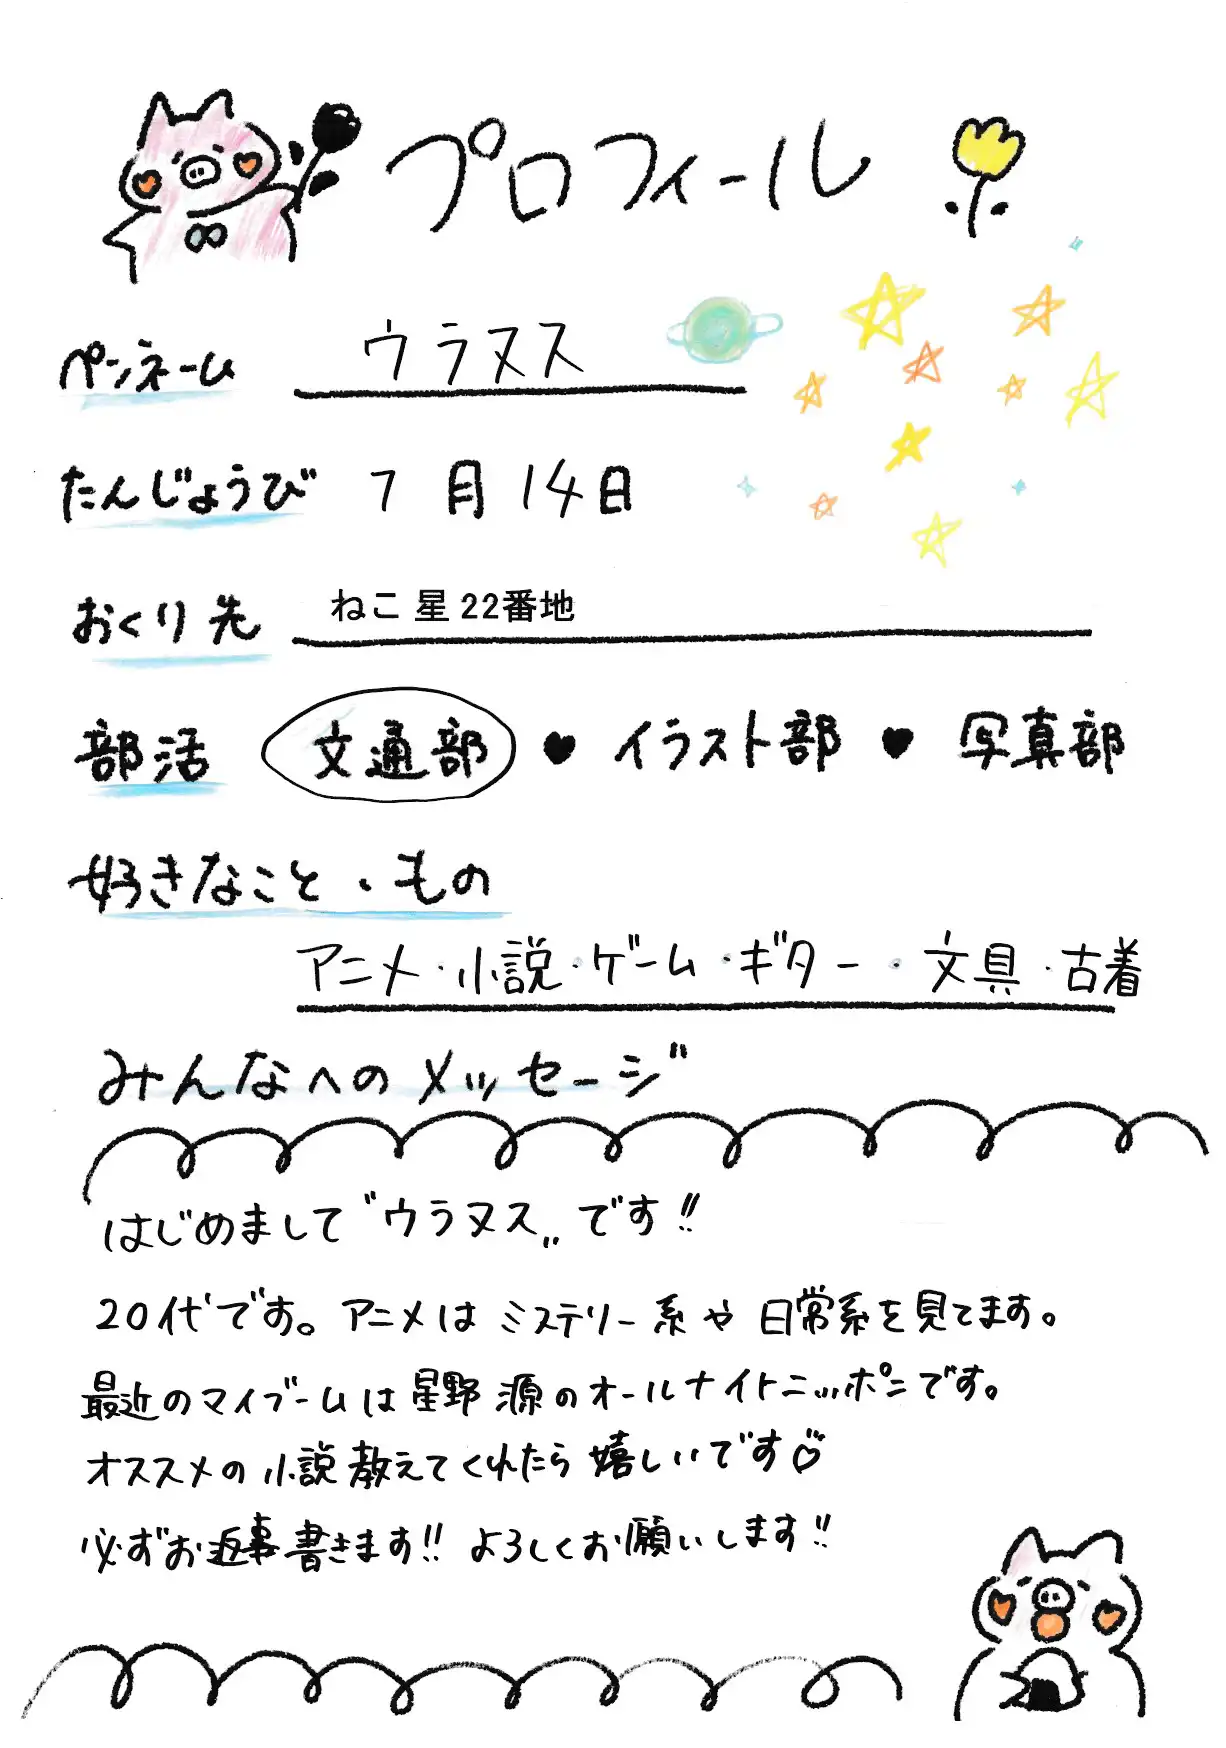 プロフィール
ペンネーム ウラヌス
たんじょうび 7月14日
おくり先 ねこ星22番地
部活 文通部 ♥ イラスト部 ♥ 写真部
好きなこと・もの
アニメ・小説・ゲーム・ギター・文具・古着
みんなへのメッセージ
はじめまして"ウラヌス"です!!
20代です。アニメはミステリー系や日常系を見てます。
最近のマイブームは星野源のオールナイトニッポンです。
オススメの小説教えてくれたら嬉しいです♡
必ずお返事書きます!! よろしくお願いします!!